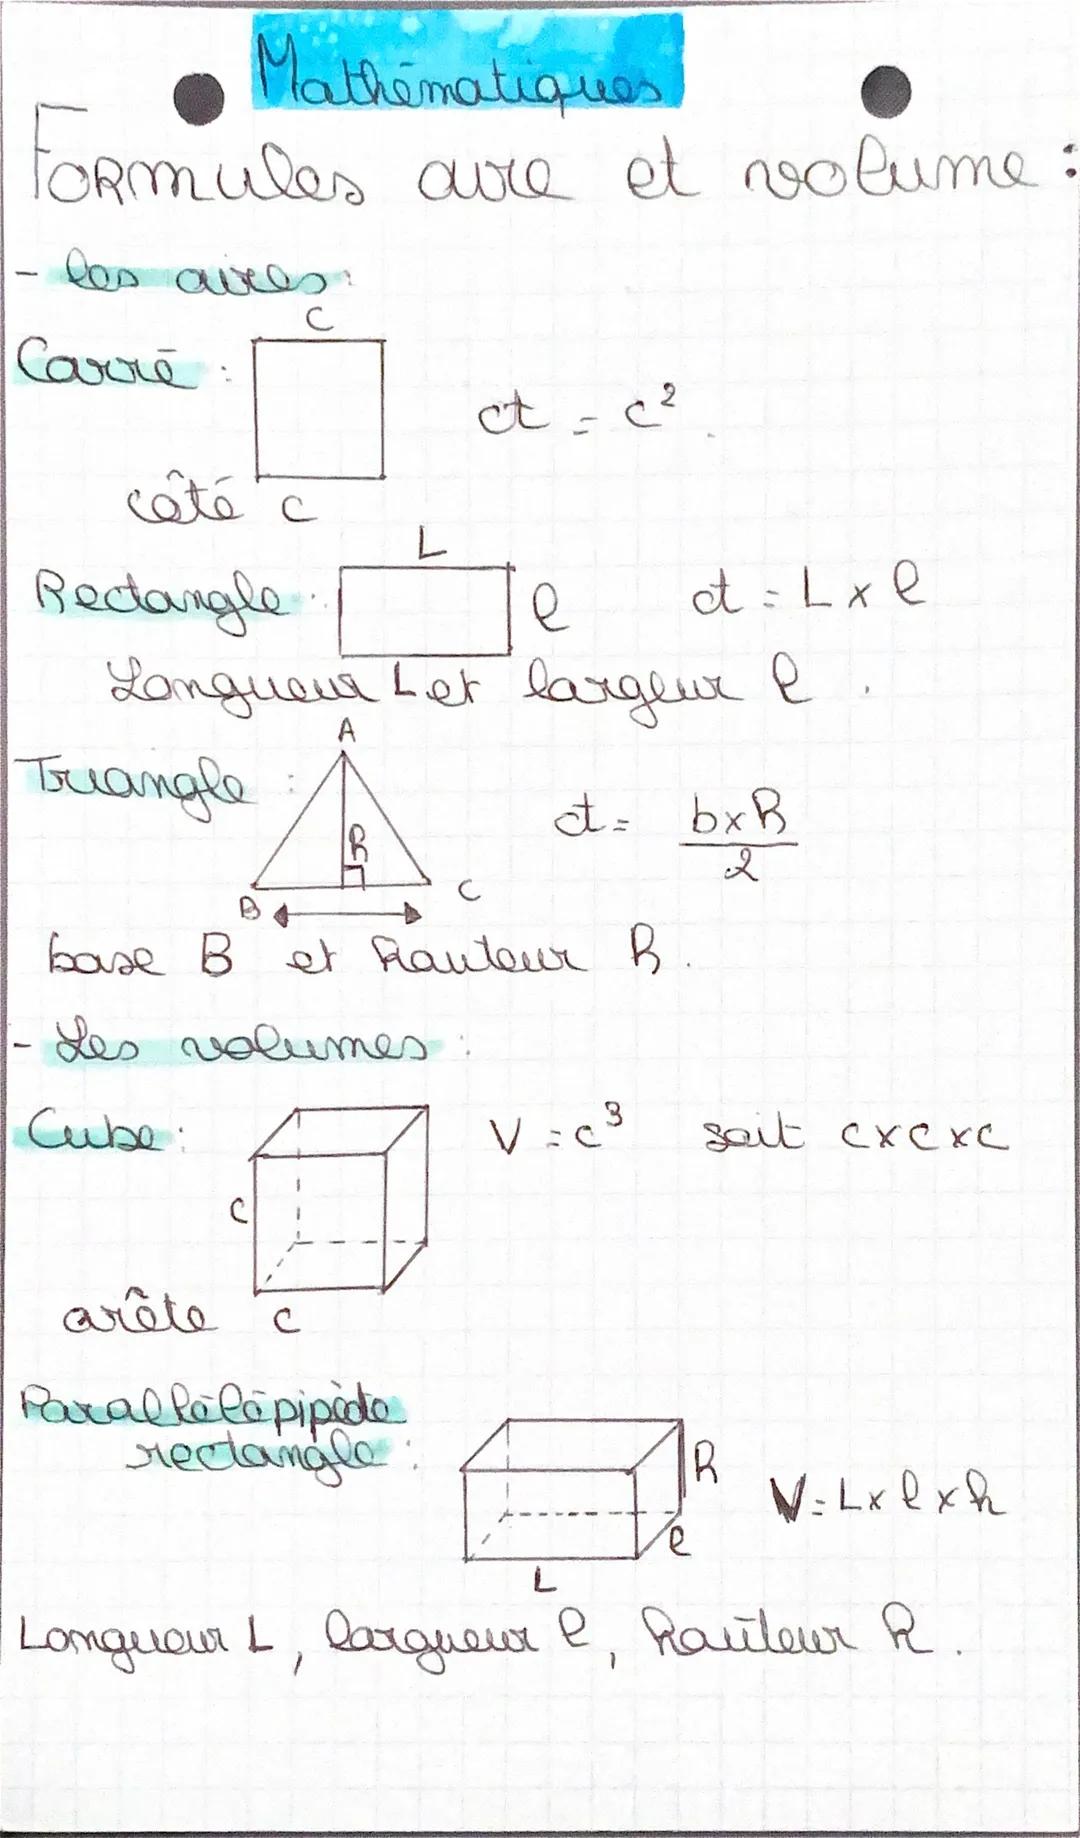 Mathématiques
Formules aire et volume :
- les aires :
C
Carré :
A = c²
côté c
L
Rectangle :
l
A = L x l
Longueur L et largeur l.
A
Triangle :
h
A = b x h / 2
B
C
base B et hauteur h.
- Les volumes :
Cube :
V = c³ soit c x c x c
c
arête c
Parallélépipède
rectangle :
h
V = L x l x h
l
L
Longueur L, largueur l, hauteur h.